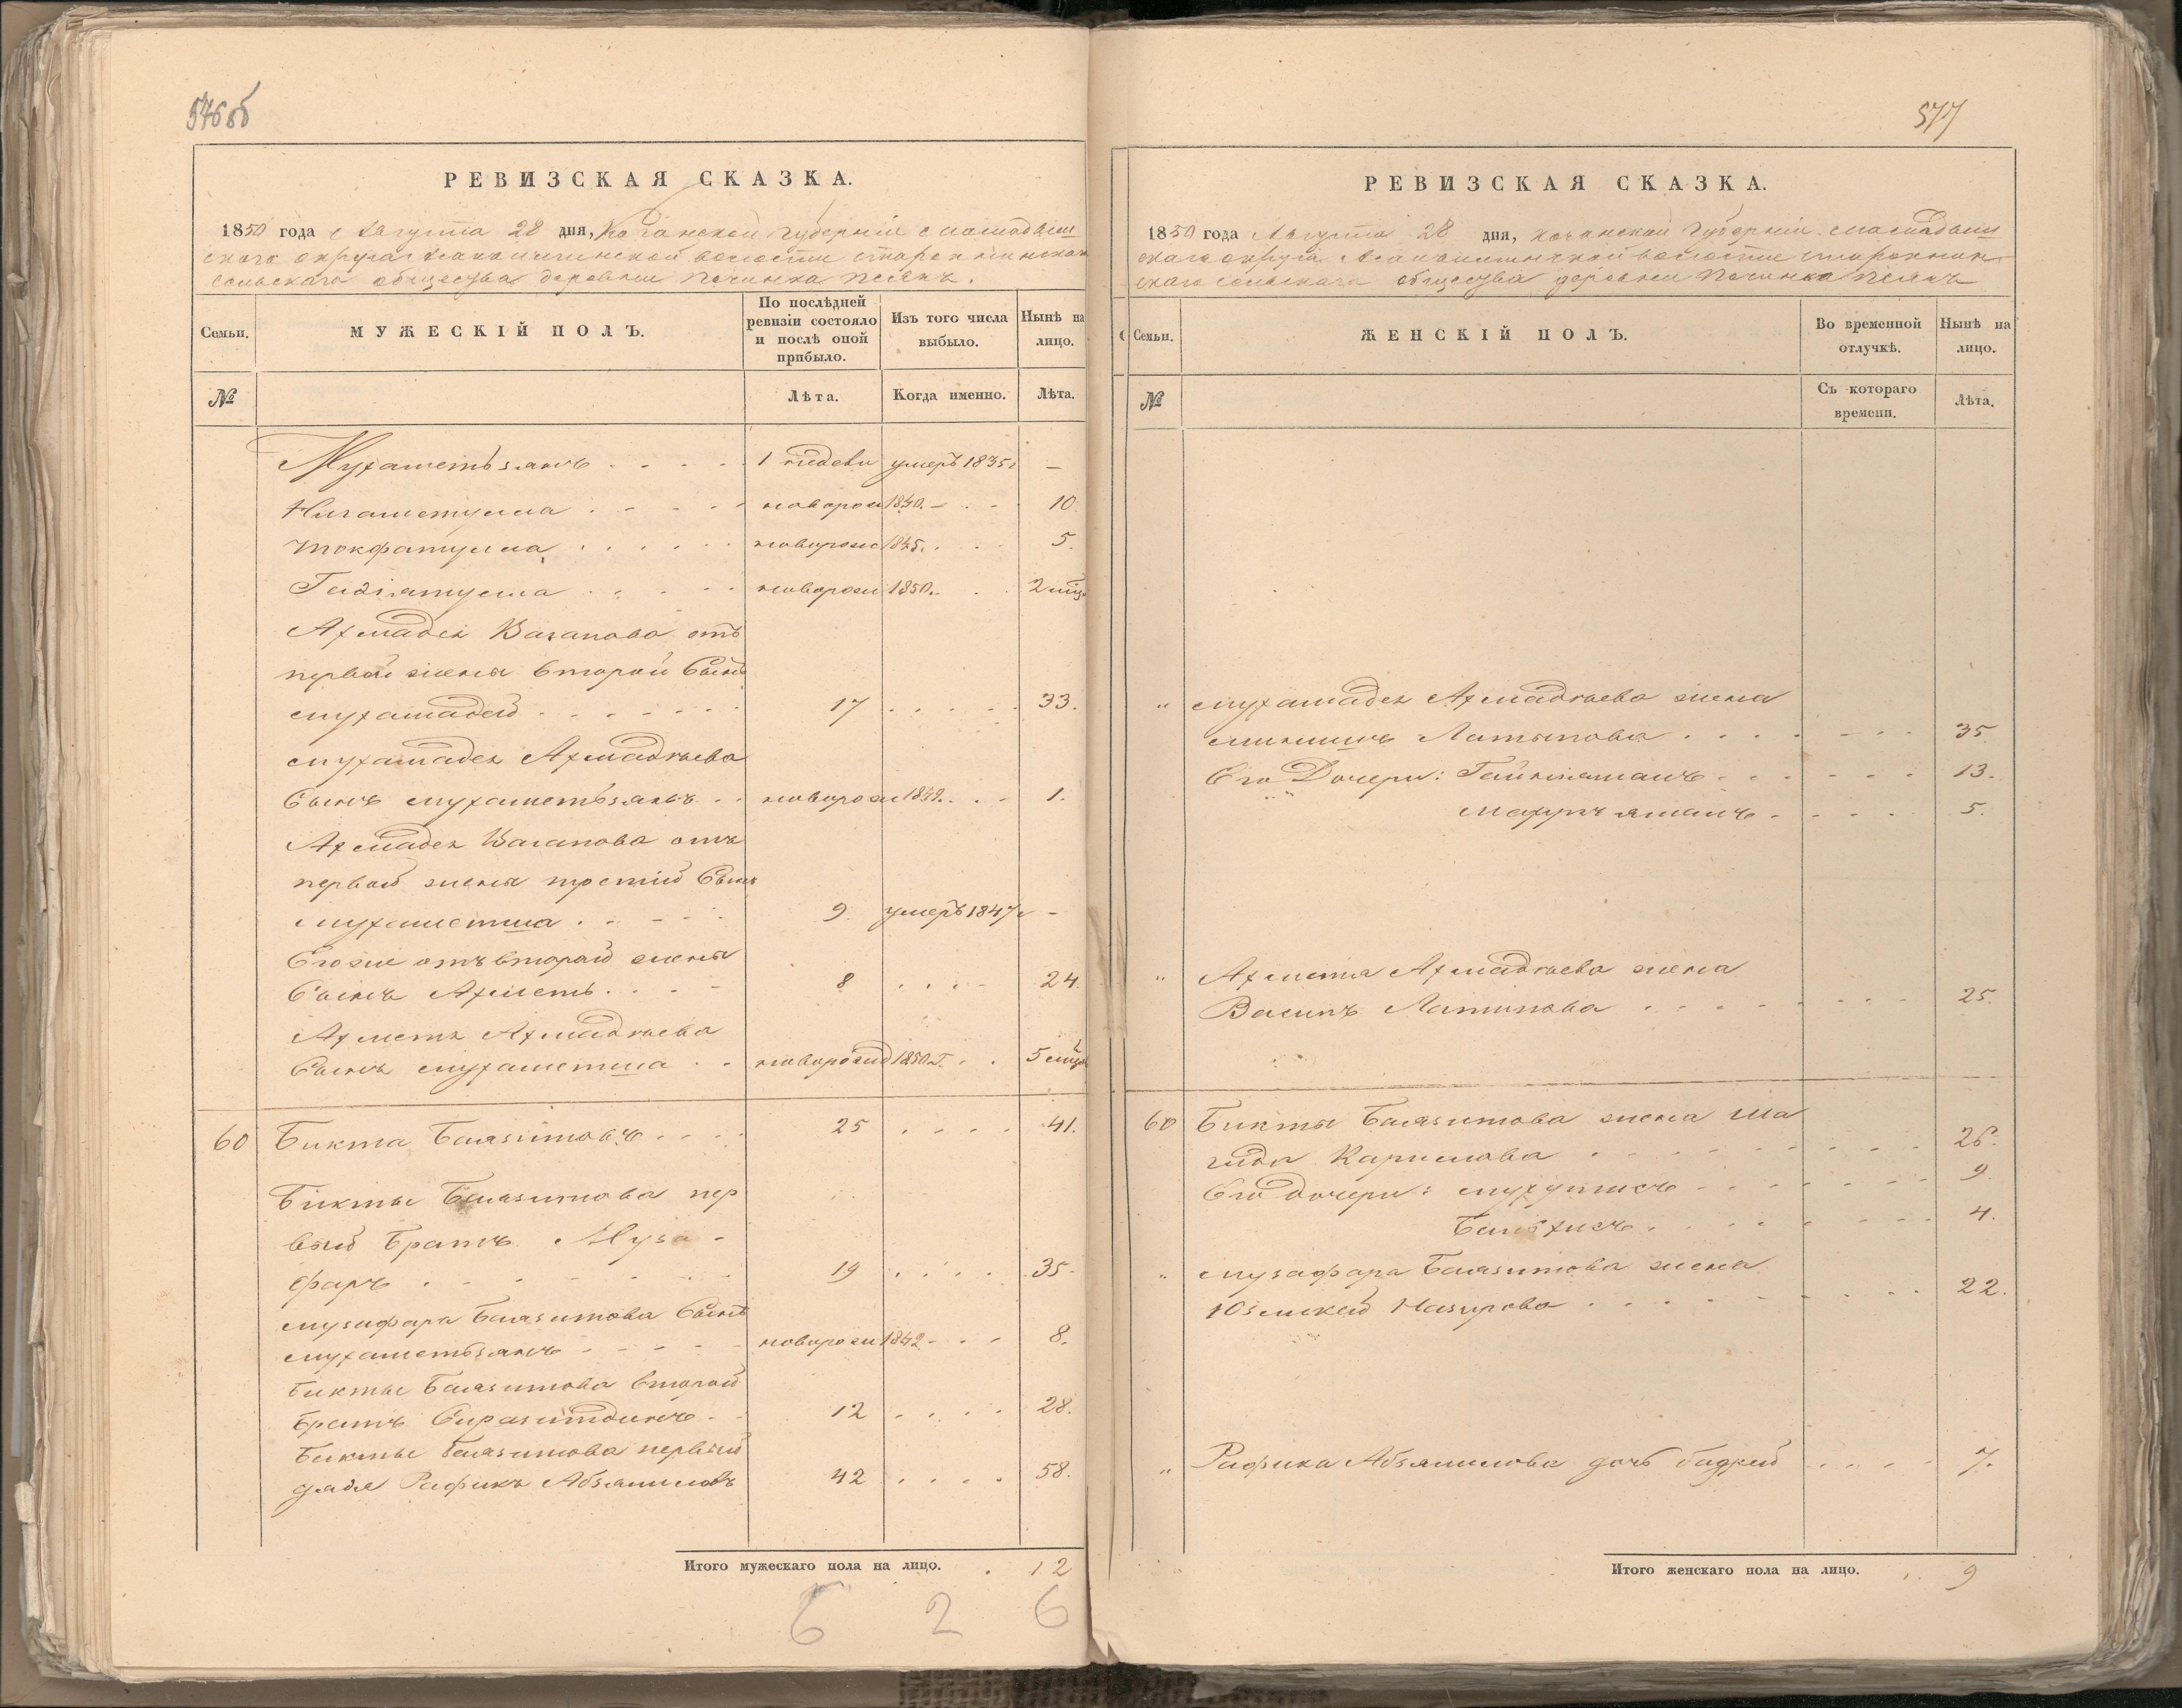 576об
РЕВИЗСКАЯ СКАЗКА.
1850 года Августа 28 дня, Казанской Губерніи Мамадыш
скаго округа волости
сельскаго общества деревни Починка
Семьи.
МУЖЕСКІЙ ПОЛЪ.
По послѣдней ревизіи состояло и послѣ оной прибыло.
Изъ того числа выбыло.
Нынѣ на лицо.
№
Лѣта.
Когда именно.
Лѣта.
Мухаметьзянъ . . . . 1 недели умеръ 1835г —
Нигаметулла . . . . новорож 1840. — . . 10.
. . . . новорож 1845. . . 5.
. . . . новорож 1850. . . 2 мѣц
Ахмадея Ваганова отъ
первой жены второй Сынъ
Мухамадей . . . . 17 . . . . 33.
Мухамадея Ахмадѣева
Сынъ Мухаметьзянъ . . новорож 1849. . . 1.
Ахмадея Ваганова отъ
первой жены третій Сынъ
Мухаметша . . . . 9. умеръ 1847г —
Его же отъ второй жены
Сынъ Ахметъ . . . 8 . . . . 24.
Ахметя Ахмадѣева
Сынъ Мухаметша . . новорожд 1850г. . . 5 мѣц
60 Бикта Баязитовъ . . . . 25 . . . . 41.
Бикты Баязитова пер
вый Братъ Муза-
фаръ . . . . 19 . . . . 35.
Музафара Баязитова Сынъ
Мухаметьзянъ . . . . новорож 1842 . . . 8.
Бикты Баязитова второй
братъ Сиразитдинъ . . 12 . . . . 28.
Бикты Баязитова первый
дядя Рафикъ Абзялиловъ 42 . . . . 58.
Итого мужескаго пола на лицо. . 12
6 2 6
577
РЕВИЗСКАЯ СКАЗКА.
1850 года Августа 28 дня, Казанской Губерніи Мамадыш
скаго округа волости
скаго сельскаго общества деревни Починка
Семьи.
ЖЕНСКІЙ ПОЛЪ.
Во временной отлучкѣ.
Нынѣ на лицо.
№
Съ котораго времени.
Лѣта.
" Мухамадея Ахмадѣева жена
Латыпова . . . . 35
Его Дочери: . . . . 13.
. . . . 5.
" Ахметя Ахмадѣева жена
Латипова . . . . 25.
60 Бикты Баязитова жена Ша
гида Каримова . . . . 26.
Его дочери: . . . . 9
. . . . 4.
" Музафара Баязитова жена
Назирова . . . . 22.
" Рафика Абзялилова дочь Бадрей . . . . 7.
Итого женскаго пола на лицо. . . 9